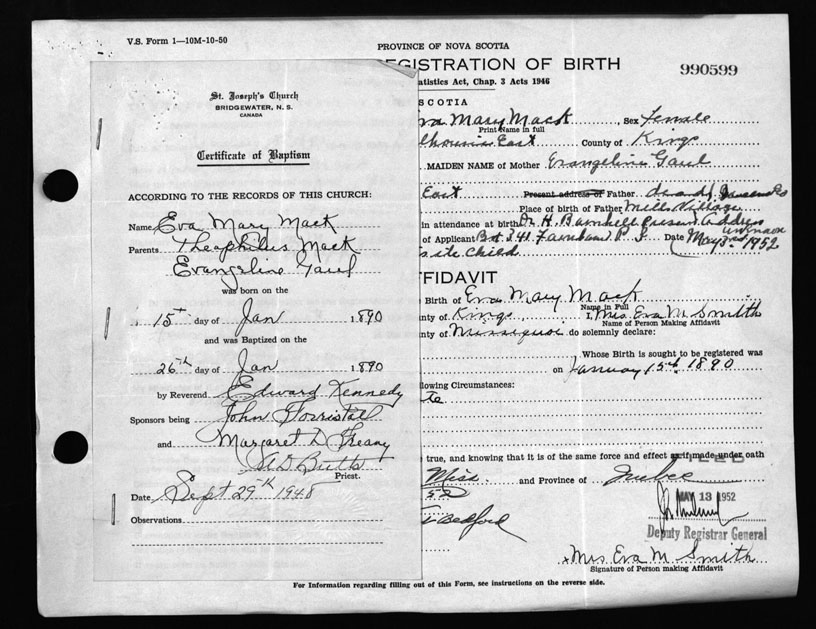 V.S. Form 1—10M-10-50
PROVINCE OF NOVA SCOTIA
EGISTRATION OF BIRTH
990599
tatistics Act, Chap. 3 Acts 1946
SCOTIA
St. Joseph's Church
BRIDGEWATER, N. S.
CANADA
Certificate of Baptism
ACCORDING TO THE RECORDS OF THIS CHURCH:
Name Eva Mary Mack
Parents Theophilus Mack
Evangeline Gaul
was born on the
15th day of Jan 1890
and was Baptized on the
26th day of Jan 1890
by Reverend Edward Kennedy
Sponsors being John Forristall
and Margaret D
Butts
Priest.
Date Sept 29th 1948
Observations
va Mary Mack Sex Female
Print Name in full
lhousie East County of Kings
MAIDEN NAME of Mother Evangeline Gaul
East Present address of Father
Place of birth of Father Mills Village
in attendance at birth Dr H. Barnhill present address
of Applicant Box 341 Farnham P. Date May 1952
child
FFIDAVIT
Birth of Eva Mary Mack
Name in Full
nty of Kings I, Mrs. Eva M Smith
Name of Person Making Affidavit
nty of Missisquoi do solemnly declare:
Whose Birth is sought to be registered was
on January 15th 1890
llowing Circumstances:
te
true, and knowing that it is of the same force and effect as if made under oath
Miss. and Province of Quebec
52
MAY 13 1952
Bedford
Deputy Registrar General
Mrs Eva M. Smith
Signature of Person making Affidavit
For Information regarding filling out of this Form, see instructions on the reverse side.